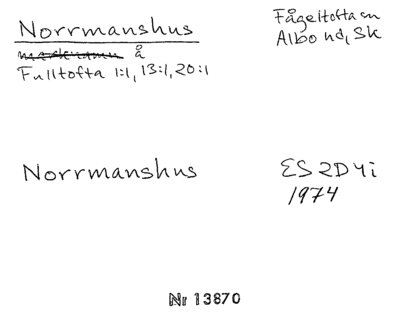 Norrmanshus
Fågeltofta sn
Albo hd, Sk
marknamn å
Fulltofta 1:1, 13:1, 20:1
Norrmanshus
ES 2D 4i
1974
Nr 13870